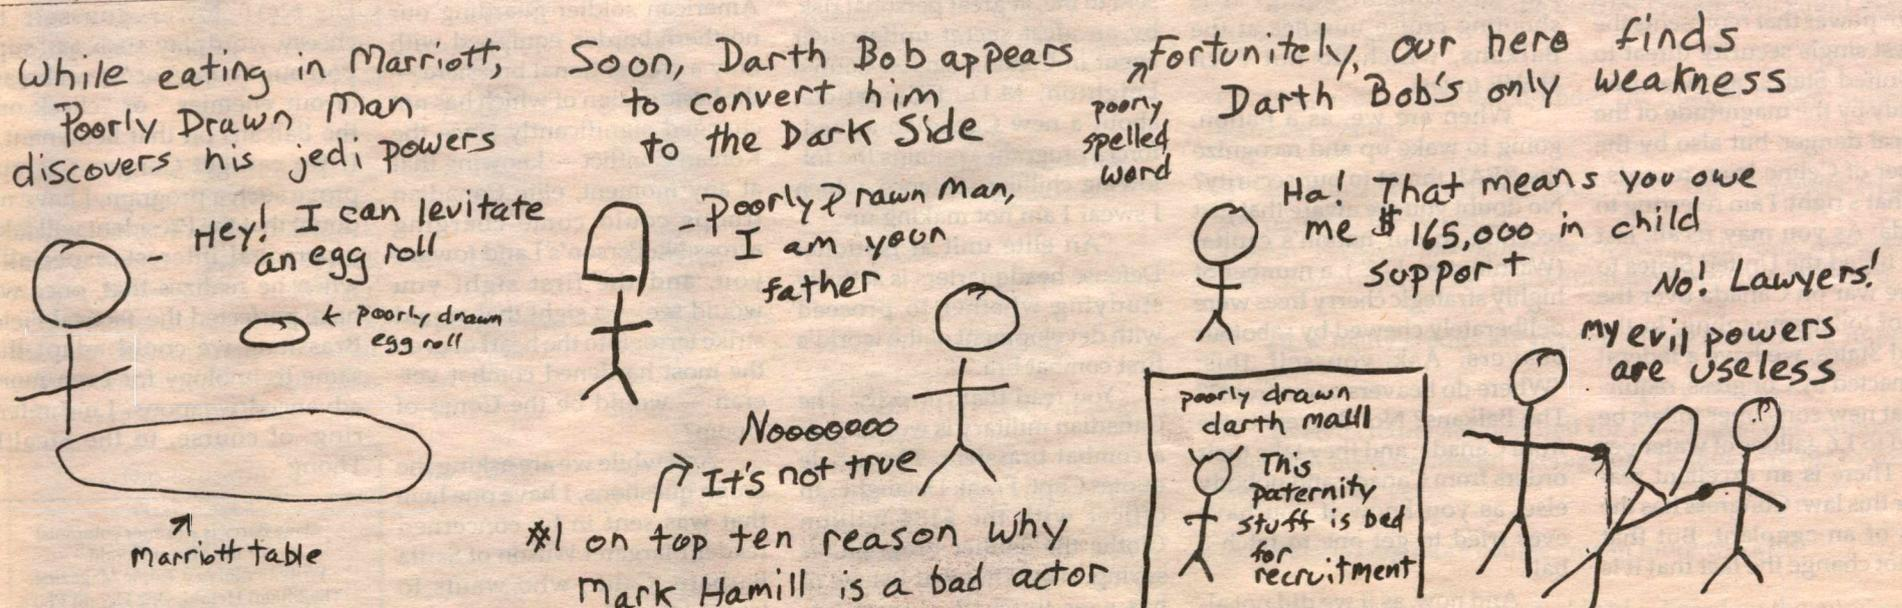 While eating in Marriott,
Poorly Drawn Man
discovers his jedi powers
Hey! I can levitate
an egg roll
poorly drawn
egg roll
Marriott table
Soon, Darth Bob appears
to convert him
to the Dark Side
Poorly Drawn Man,
I am your
father
Nooooooo
It's not true
#1 on top ten reason why
Mark Hamill is a bad actor
Fortunitely, our hero finds
Darth Bob's only weakness
poorly
spelled
word
Ha! That means you owe
me $165,000 in child
support
No! Lawyers!
My evil powers
are useless
poorly drawn
darth maull
This
paternity
stuff is bad
for
recruitment